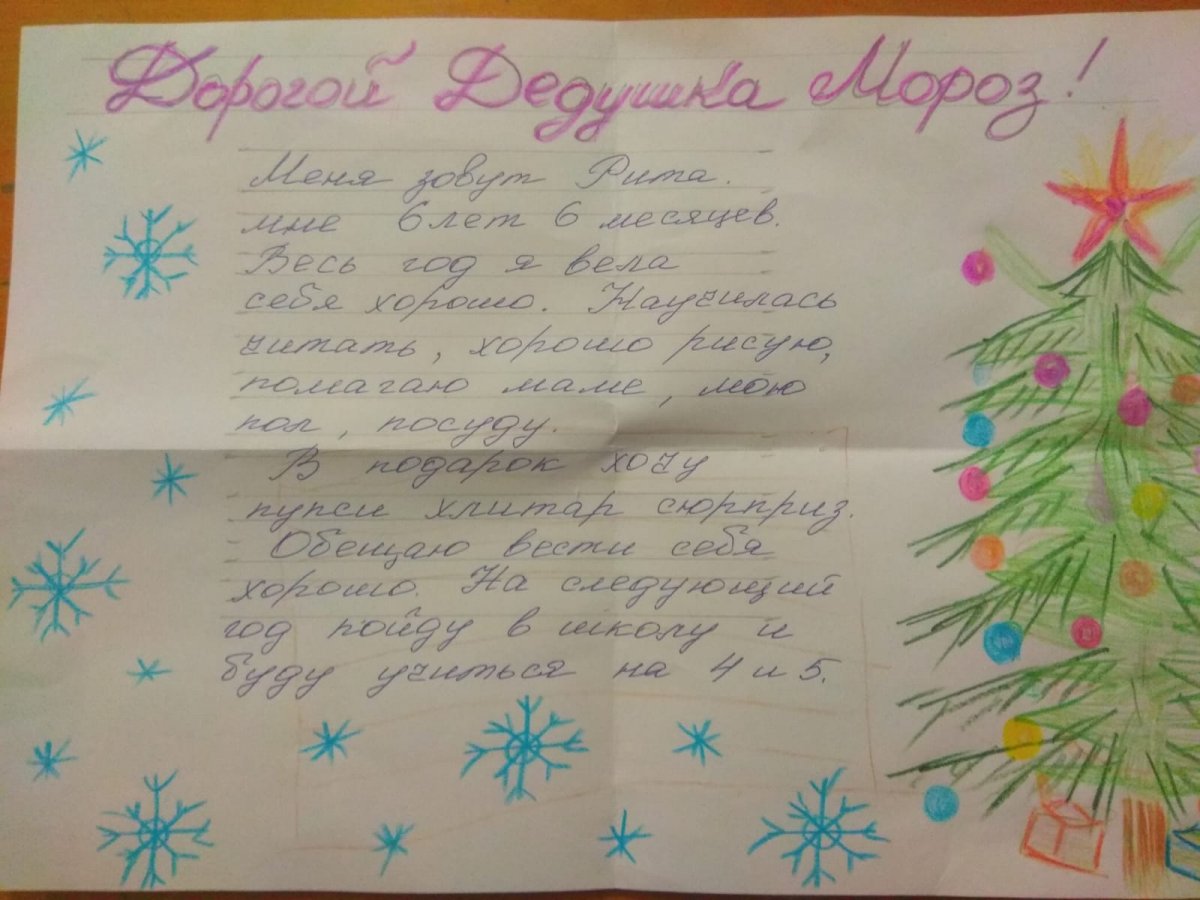 Дорогой Дедушка Мороз!
Меня зовут Рита.
мне 6 лет 6 месяцев.
Весь год я вела
себя хорошо. Научилась
читать, хорошо рисую,
помагаю маме, мою
пол, посуду.
В подарок хочу
пупси хлитар сюрприз.
Обещаю вести себя
хорошо. На следующий
год пойду в школу и
буду учиться на 4 и 5.